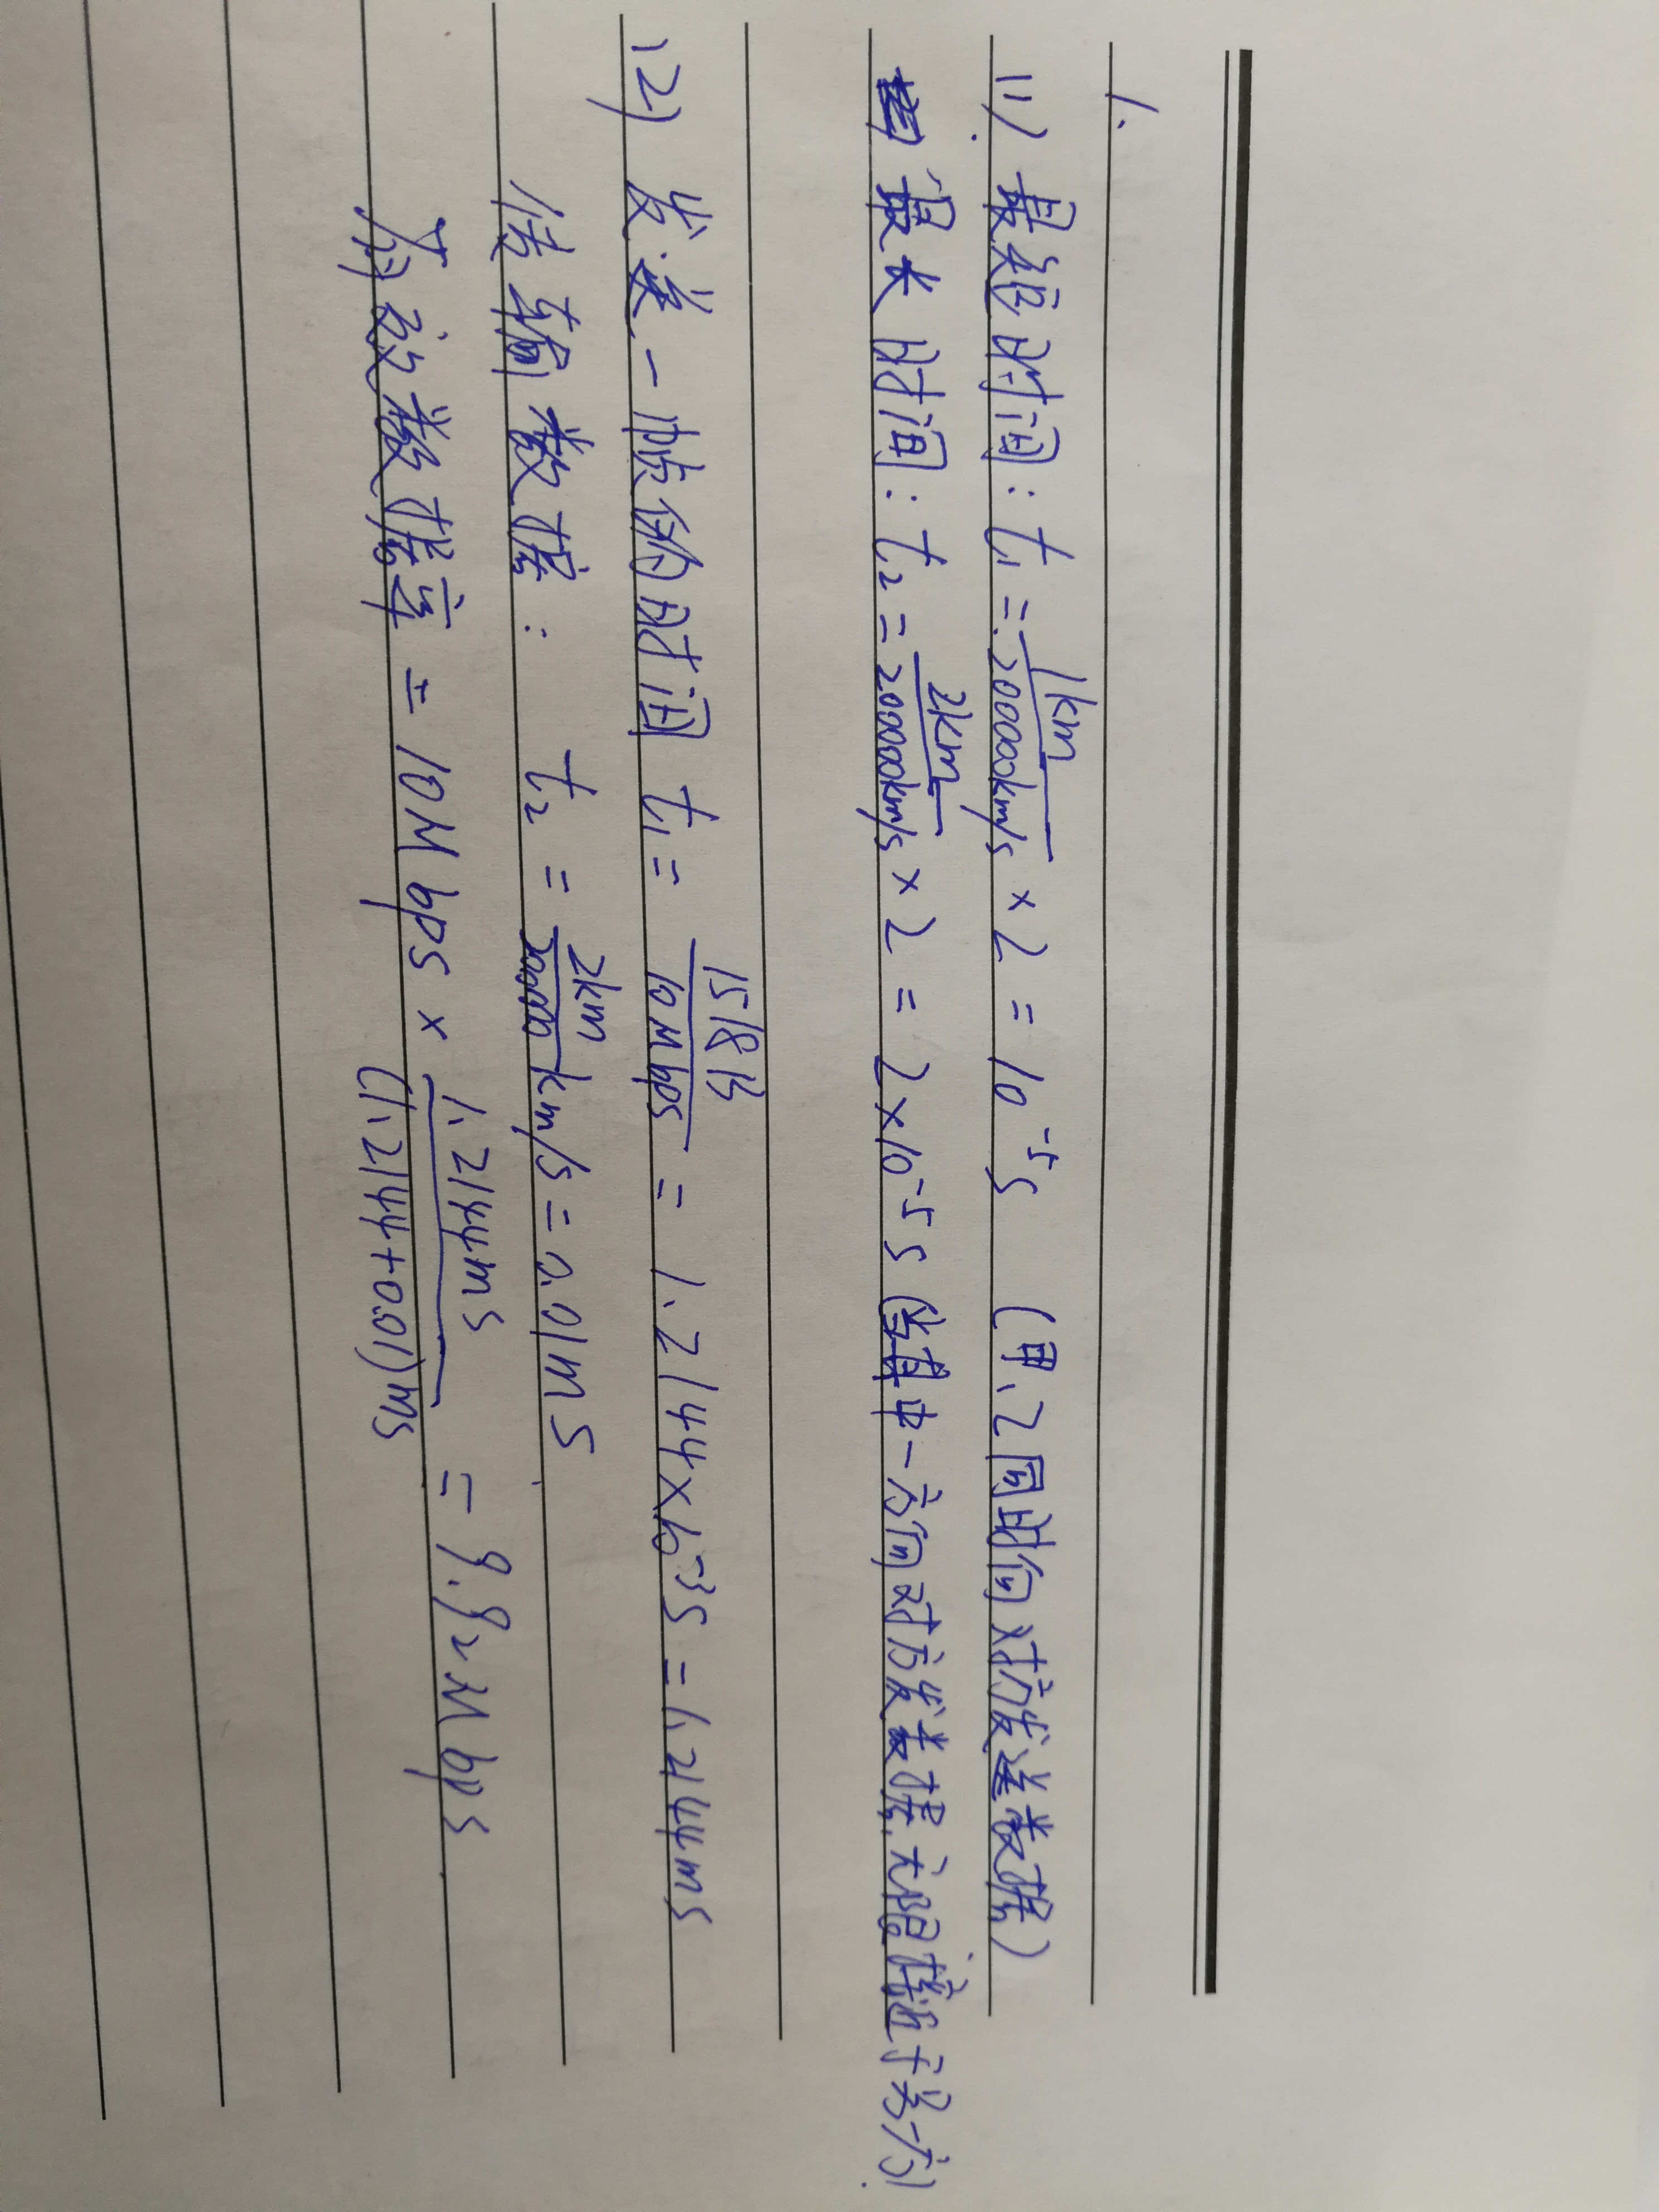 1.
(1) 最短时间: t₁ = 1km / 200000km/s × 2 = 10⁻⁵s (甲、乙同时向对方发送数据)
最长时间: t₂ = 2km / 200000km/s × 2 = 2×10⁻⁵s (当其中一方向对方发数据,无限接近于另一方)
(2) 发送一帧的时间 t₁ = 1518B / 10Mbps = 1.2144×10⁻³s = 1.2144ms
传输数据: t₂ = 2km / 200000km/s = 0.01ms
有效数据率 = 10Mbps × 1.2144ms / (1.2144+0.01)ms = 9.92Mbps